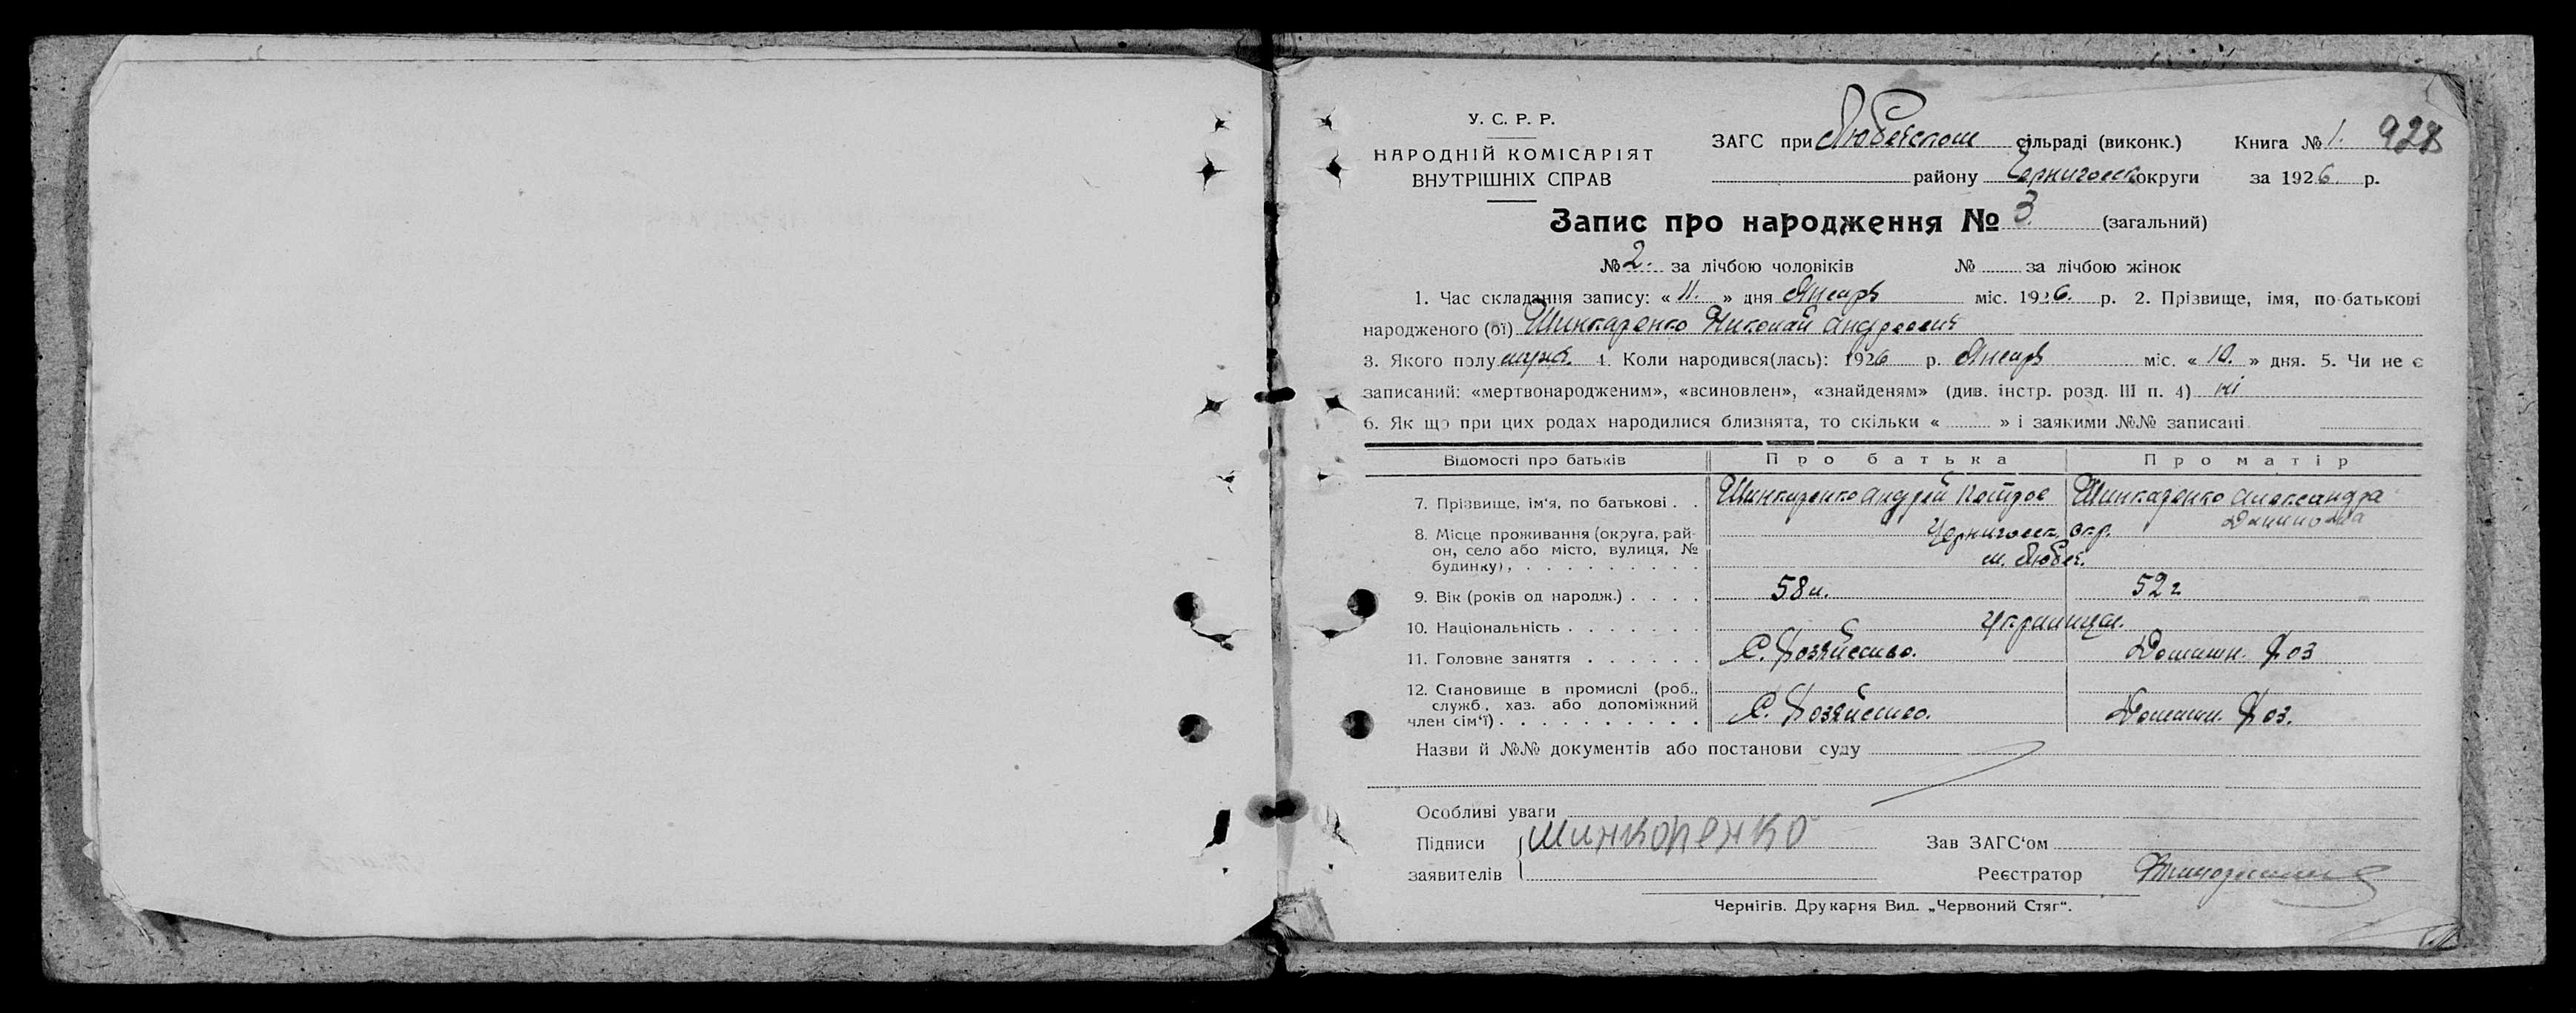 У. С. Р. Р.
НАРОДНІЙ КОМІСАРІЯТ
ВНУТРІШНІХ СПРАВ
ЗАГС при Любечском сільраді (виконк.) Книга № 1. 928
району Черниговск округи за 1926. р.
Запис про народження № 3. (загальний)
№ 2. за лічбою чоловіків № за лічбою жінок
1. Час складання запису: « 11. » дня Январь міс. 1926. р. 2. Прізвище, імя, по-батькові
народженого (ої) Шинкаренко Николай Андреевич
3. Якого полу мужс. 4. Коли народився(лась): 1926 р. Январь міс. « 10. » дня. 5. Чи не є
записаний: «мертвонародженим», «всиновлен», «знайденям» (див. інстр. розд. III п. 4) ні
6. Як що при цих родах народилися близнята, то скільки « » і заякими №№ записані
Відомості про батьків Про батька Про матір
7. Прізвище, ім'я, по батькові . . Шинкаренко Андрей Петров Шинкаренко Александра
Данилова
8. Місце проживання (округа, рай- Черниговск. окр.
он, село або місто, вулиця, №
будинку), . . . . . . . . . м. Любеч.
9. Вік (років од народж.) . . . . 58 л. 52 г
10. Національність . . . . . . Украинцы.
11. Головне заняття . . . . . . С. Хозяйство. Домашн. Хоз
12. Становище в промислі (роб.,
служб., хаз. або допоміжний
член сім'ї) . . . . . . . . . . С. Хозяйство. Домашн. Хоз.
Назви й №№ документів або постанови суду
Особливі уваги
Підписи Шинкоренко Зав ЗАГС'ом
заявителів Реєстратор
Чернігів. Друкарня Вид. „Червоний Стяг“.